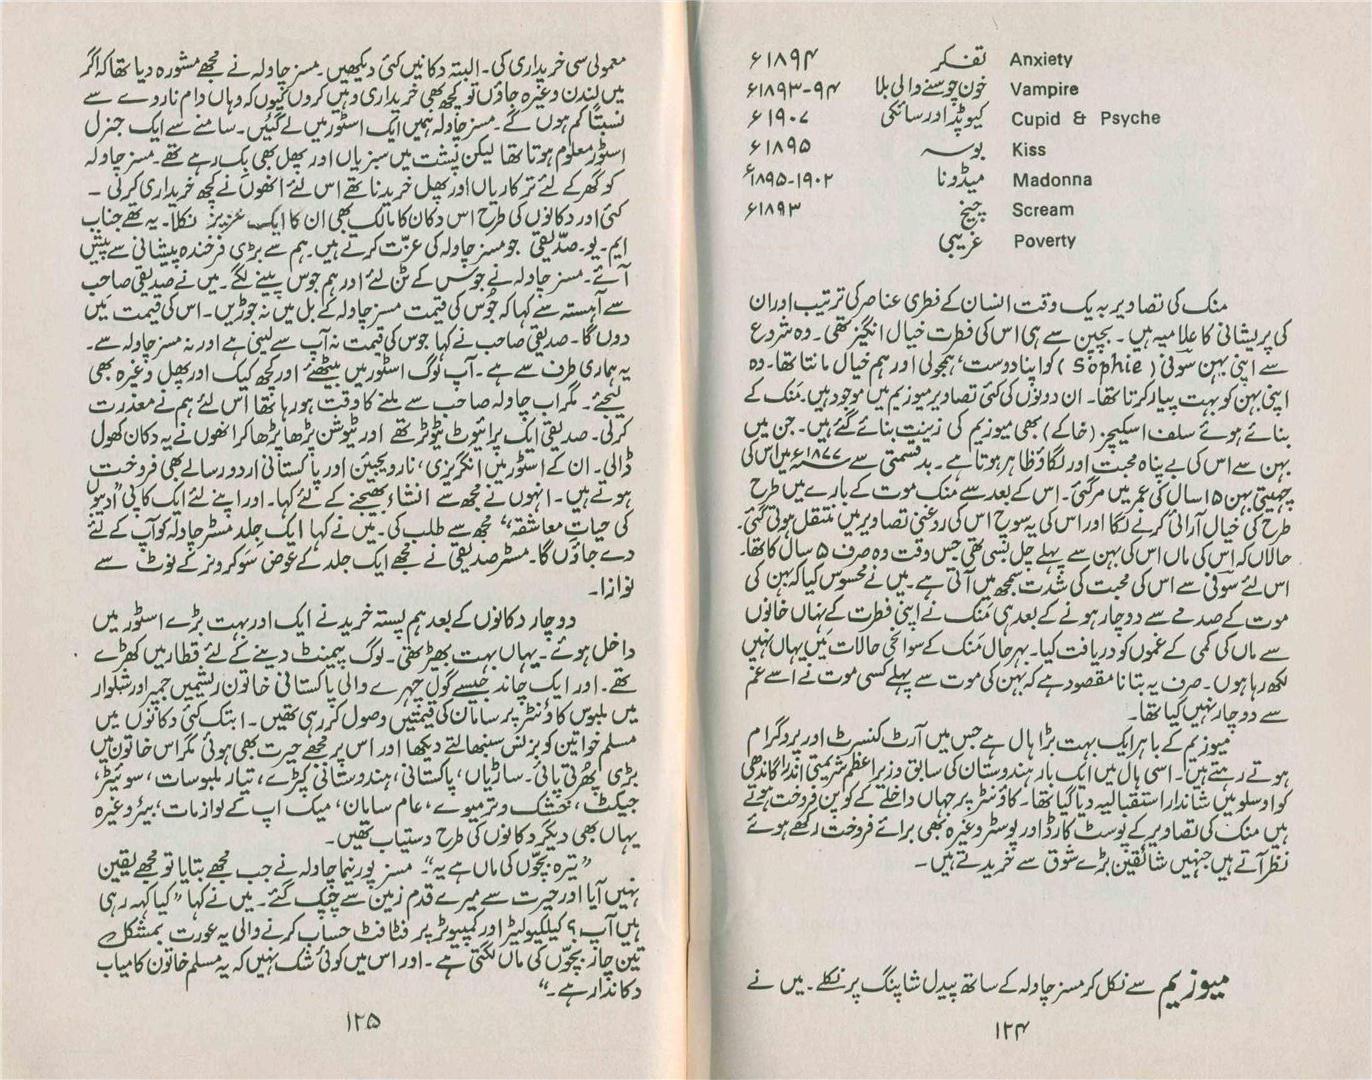 Anxiety تفکر ۱۸۹۴ء
Vampire خون چوسنے والی بلا ۹۴-۱۸۹۳ء
Cupid & Psyche کیوپڈ اور سائکی ۱۹۰۷ء
Kiss بوسہ ۱۸۹۵ء
Madonna میڈونا ۱۹۰۲-۱۸۹۵ء
Scream چیخ ۱۸۹۳ء
Poverty غریبی
منک کی تصاویر بہ یک وقت انسان کے فطری عناصر کی ترتیب اور ان
کی پریشانی کا علامیہ ہیں۔ بچپن سے ہی اس کی فطرت خیال انگیز تھی۔ وہ شروع
سے اپنی بہن سوفی (Sophie) کو اپنا دوست، ہمجولی اور ہم خیال مانتا تھا۔ وہ
اپنی بہن کو بہت پیار کرتا تھا۔ ان دونوں کی کئی تصاویر میوزیم میں موجود ہیں۔ منک کے
بنائے ہوئے سلف اسکیچز (خاکے) بھی میوزیم کی زینت بنائے گئے ہیں۔ جن میں
بہن سے اس کی بے پناہ محبت اور لگاؤ ظاہر ہوتا ہے۔ بدقسمتی سے ۱۸۷۷ء میں اس کی
چہیتی بہن ۱۵ سال کی عمر میں مر گئی۔ اس کے بعد سے منک موت کے بارے میں طرح
طرح کی خیال آرائی کرنے لگا اور اس کی یہ سوچ اس کی روغنی تصاویر میں منتقل ہوتی گئی۔
حالاں کہ اس کی ماں اس کی بہن سے پہلے چل بسی تھی جس وقت وہ صرف ۵ سال کا تھا۔
اس لئے سوفی سے اس کی محبت کی شدت سمجھ میں آتی ہے۔ میں نے محسوس کیا کہ بہن کی
موت کے صدمے سے دو چار ہونے کے بعد ہی منک نے اپنی فطرت کے نہاں خانوں
سے ماں کی کمی کے غموں کو دریافت کیا۔ بہرحال منک کے سوانحی حالات میں یہاں نہیں
لکھ رہا ہوں۔ صرف یہ بتانا مقصود ہے کہ بہن کی موت سے پہلے کسی موت نے اسے غم
سے دو چار نہیں کیا تھا۔
میوزیم کے باہر ایک بہت بڑا ہال ہے جس میں آرٹ کنسرٹ اور پروگرام
ہوتے رہتے ہیں۔ اسی ہال میں ایک بار ہندوستان کی سابق وزیر اعظم شریمتی اندرا گاندھی
کو اوسلو میں شاندار استقبالیہ دیا گیا تھا۔ کاؤنٹر پر جہاں داخلے کے کوپن فروخت ہوتے
ہیں منک کی تصاویر کے پوسٹ کارڈ اور پوسٹر وغیرہ بھی برائے فروخت رکھے ہوئے
نظر آتے ہیں جنہیں شائقین بڑے شوق سے خریدتے ہیں۔
میوزیم سے نکل کر مسز چاولہ کے ساتھ پیدل شاپنگ پر نکلے۔ میں نے
۱۲۴
معمولی سی خریداری کی۔ البتہ دکانیں کئی دیکھیں۔ مسز چاولہ نے مجھے مشورہ دیا تھا کہ اگر
میں لندن وغیرہ جاؤں تو کچھ بھی خریداری وہیں کروں کیوں کہ وہاں دام ناروے سے
نسبتاً کم ہوں گے۔ مسز چاولہ ہمیں ایک اسٹور میں لے گئیں۔ سامنے سے ایک جنرل
اسٹور معلوم ہوتا تھا لیکن پشت میں سبزیاں اور پھل بھی بک رہے تھے۔ مسز چاولہ
کو گھر کے لئے ترکاریاں اور پھل خریدنا تھے اس لئے انھوں نے کچھ خریداری کر لی۔
کئی اور دکانوں کی طرح اس دکان کا مالک بھی ان کا ایک عزیز نکلا۔ یہ تھے جناب
ایم۔ یو۔ صدّیقی جو مسز چاولہ کی عزّت کرتے ہیں۔ ہم سے بڑی فرخندہ پیشانی سے پیش
آئے۔ مسز چاولہ نے جوس کے ٹن لئے اور ہم جوس پینے لگے۔ میں نے صدیقی صاحب
سے آہستہ سے کہا کہ جوس کی قیمت مسز چاولہ کے بل میں نہ جوڑیں۔ اس کی قیمت میں
دوں گا۔ صدیقی صاحب نے کہا جوس کی قیمت نہ آپ سے لینی ہے اور نہ مسز چاولہ سے۔
یہ ہماری طرف سے ہے۔ آپ لوگ اسٹور میں بیٹھئے اور کچھ کیک اور پھل وغیرہ بھی
لیجئے۔ مگر اب چاولہ صاحب سے ملنے کا وقت ہو رہا تھا اس لئے ہم نے معذرت
کر لی۔ صدیقی ایک پرائیوٹ ٹیوٹر تھے اور ٹیوشن پڑھا پڑھا کر انھوں نے یہ دکان کھول
ڈالی۔ ان کے اسٹور میں انگریزی، نارویجین اور پاکستانی اردو رسالے بھی فروخت
ہوتے ہیں۔ انہوں نے مجھ سے انشاء بھیجنے کے لئے کہا۔ اور اپنے لئے ایک کاپی ”ادیبوں
کی حیاتِ معاشقہ“ مجھ سے طلب کی۔ میں نے کہا ایک جلد مسٹر چاولہ کو آپ کے لئے
دے جاؤں گا۔ مسٹر صدیقی نے مجھے ایک جلد کے عوض سو کرونر کے نوٹ سے
نوازا۔
دو چار دکانوں کے بعد ہم پستہ خریدنے ایک اور بہت بڑے اسٹور میں
داخل ہوئے۔ یہاں بہت بھیڑ تھی۔ لوگ پیمنٹ دینے کے لئے قطار میں کھڑے
تھے۔ اور ایک چاند جیسے گول چہرے والی پاکستانی خاتون ریشمیں جمپر اور شلوار
میں ملبوس کاؤنٹر پر سامان کی قیمتیں وصول کر رہی تھیں۔ ابتک کئی دکانوں میں
مسلم خواتین کو بزنس سنبھالتے دیکھا اور اس پر مجھے حیرت بھی ہوئی مگر اس خاتون میں
بڑی پھرتی پائی۔ ساڑیاں، پاکستانی، ہندوستانی کپڑے، تیار ملبوسات، سوئیٹر،
جیکٹ، خشک و تر میوے، عام سامان، میک اپ کے لوازمات، بیئر وغیرہ
یہاں بھی دیگر دکانوں کی طرح دستیاب تھیں۔
”تیرہ بچّوں کی ماں ہے یہ“۔ مسز پورنیما چاولہ نے جب مجھے بتایا تو مجھے یقین
نہیں آیا اور حیرت سے میرے قدم زمین سے چپک گئے۔ میں نے کہا ”کیا کہہ رہی
ہیں آپ؟ کیلکیولیٹر اور کمپیوٹر پر فٹافٹ حساب کرنے والی یہ عورت بمشکل
تین چار بچّوں کی ماں لگتی ہے۔ اور اس میں کوئی شک نہیں کہ یہ مسلم خاتون کامیاب
دکاندار ہے۔“
۱۲۵